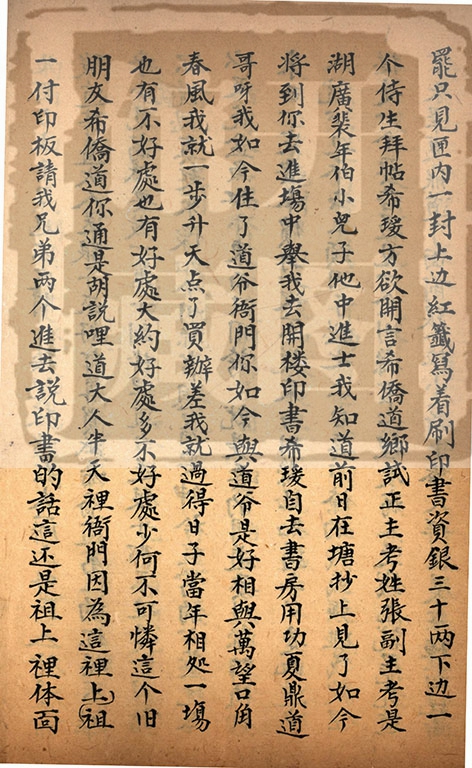 罷只見匣内一封上边紅籤寫着刷印書資銀三十两下边一
个侍生拜帖希瑗方欲開言希僑道鄉試正主考姓張副主考是
湖廣裴年伯小兒子他中進士我知道前日在塘抄上見了如今
將到你去進塲中舉我去開楼印書希瑗自去書房用功夏鼎道
哥呀我如今住了道爷衙門你如今與道爷是好相與萬望口角
春風我就一步升天点了買辦差我就過得日子當年相処一塲
也有不好處也有好處大約好處多不好處少何不可憐這个旧
朋友希僑道你通是胡説哩道大人半天裡衙門因為這裡上祖
一付印板請我兄弟两个進去説印書的話這还是祖上裡体面